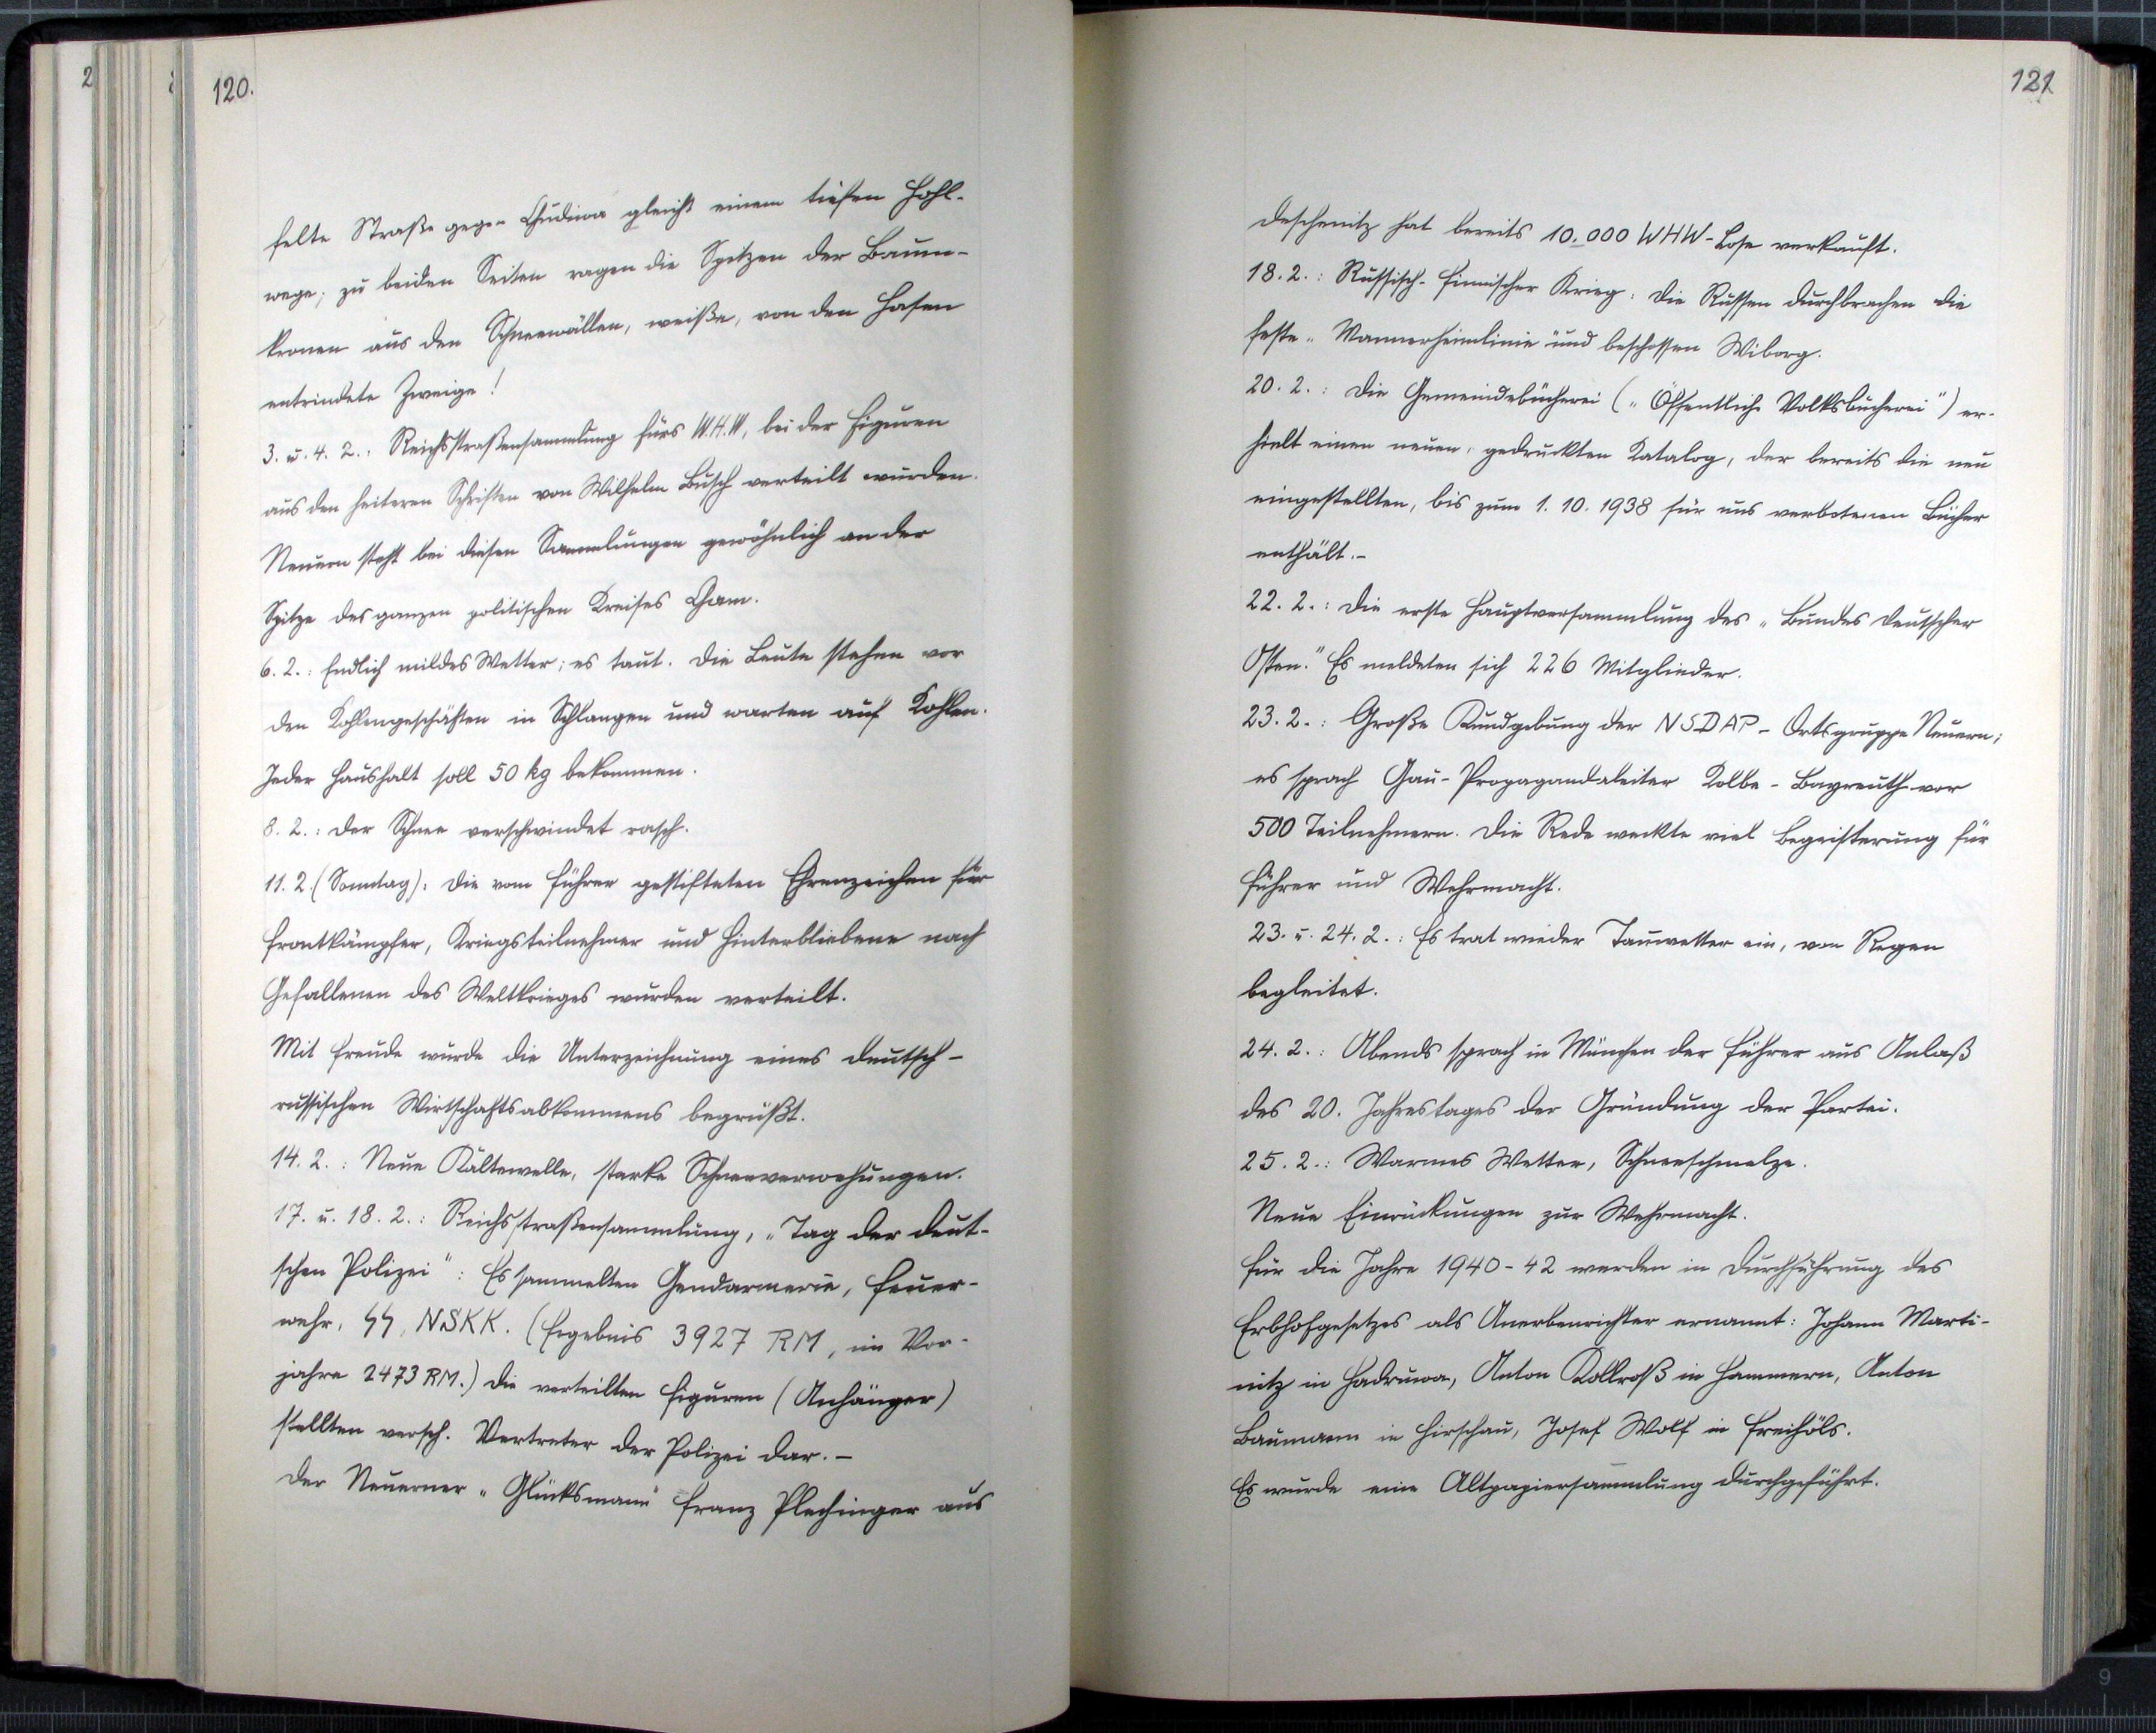 120.
felte Straße gegen Chudiwa gleicht einem tiefen Hohl-
wege; zu beiden Seiten ragen die Spitzen der Baum-
kronen aus den Schneewällen, weiße, von den Hasen
entrindete Zweige!
3. u. 4. 2.: Reichsstraßensammlung fürs W.H.W, bei der Figuren
aus den heiteren Schriften von Wilhelm Busch verteilt wurden.
Neuern steht bei diesen Sammlungen gewöhnlich an der
Spitze des ganzen politischen Kreises Cham.
6. 2.: Endlich mildes Wetter; es taut. Die Leute stehen vor
den Kohlengeschäften in Schlangen und warten auf Kohlen.
Jeder Haushalt soll 50 kg bekommen.
8. 2.: Der Schnee verschwindet rasch.
11. 2. (Sonntag): Die vom Führer gestifteten Ehrenzeichen für
Frontkämpfer, Kriegsteilnehmer und Hinterbliebene nach
Gefallenen des Weltkrieges wurden verteilt.
Mit Freude wurde die Unterzeichnung eines deutsch-
russischen Wirtschaftsabkommens begrüßt.
14. 2.: Neue Kältewelle, starke Schneeverwehungen.
17. u. 18. 2.: Reichsstraßensammlung, „Tag der deut-
schen Polizei": Es sammelten Gendarmerie, Feuer-
wehr, SS, NSKK. (Ergebnis 3927 RM, im Vor-
jahre 2473 RM.) Die verteilten Figuren (Anhänger)
stellten versch. Vertreter der Polizei dar. –
Der Neuerner „Glücksmann" Franz Plechinger aus
121
Deschenitz hat bereits 10.000 WHW-Lose verkauft.
18. 2.: Russisch-finnischer Krieg: Die Russen durchbrachen die
feste „Mannerheimlinie" und beschossen Wiborg.
20. 2.: Die Gemeindebücherei („Öffentliche Volksbücherei") er-
hielt einen neuen, gedruckten Katalog, der bereits die neu
eingestellten, bis zum 1. 10. 1938 für uns verbotenen Bücher
enthält. –
22. 2.: Die erste Hauptversammlung des „Bundes Deutscher
Osten." Es meldeten sich 226 Mitglieder.
23. 2.: Große Kundgebung der NSDAP-Ortsgruppe Neuern;
es sprach Gau-Propagandaleiter Kolbe-Bayreuth vor
500 Teilnehmern. Die Rede weckte viel Begeisterung für
Führer und Wehrmacht.
23. u. 24. 2.: Es trat wieder Tauwetter ein, von Regen
begleitet.
24. 2.: Abends sprach in München der Führer aus Anlaß
des 20. Jahrestages der Gründung der Partei.
25. 2.: Warmes Wetter, Schneeschmelze.
Neue Einrückungen zur Wehrmacht.
Für die Jahre 1940-42 werden in Durchführung des
Erbhofgesetzes als Anerbenrichter ernannt: Johann Marti-
nitz in Hadruwa, Anton Kollroß in Hammern, Anton
Baumann in Hirschau, Josef Wolf in Freihöls.
Es wurde eine Altpapiersammlung durchgeführt.